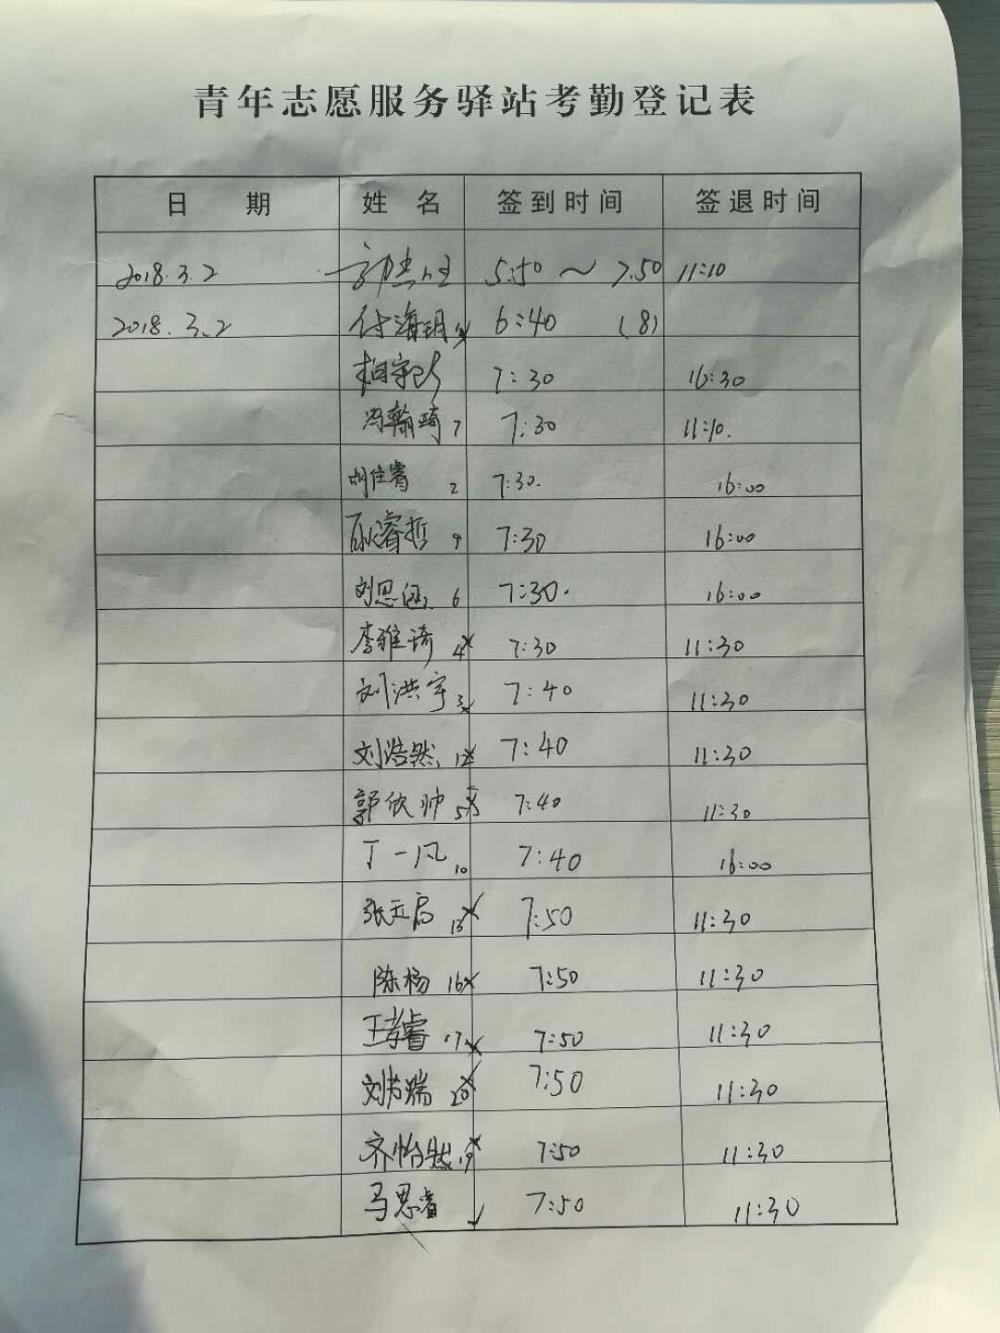 青年志愿服务驿站考勤登记表
日 期 姓 名 签到时间 签退时间
2018.3.2 5:50 ~ 7.50 11:10
2018.3.2 付海玥 6:40 (8)
7:30 16:30
冯翰琦 7 7:30 11:10.
胡佳睿 2 7:30. 16:00
睿哲 9 7:30 16:00
刘思涵 6 7:30. 16:00
李雅琦 4 7:30 11:30
刘洪宇 3 7:40 11:30
刘浩然 12 7:40 11:30
郭欣帅 5 7:40 11:30
丁一凡 10 7:40 16:00
张天启 13 7:50 11:30
陈杨 16 7:50 11:30
王孝睿 17 7:50 11:30
刘芳瑞 20 7:50 11:30
齐怡然 19 7:50 11:30
马思睿 7:50 11:30